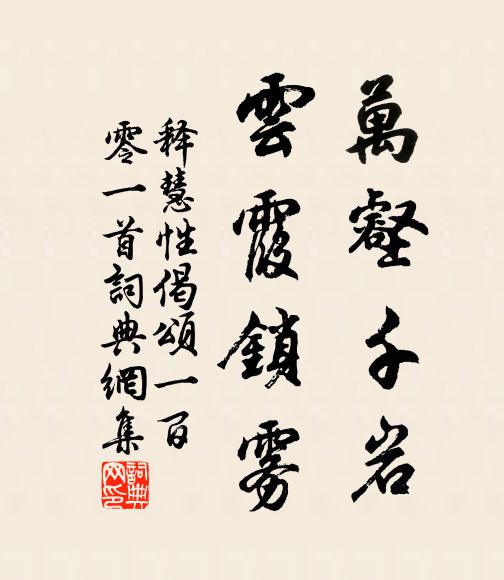 萬壑千岩
雲霞鎖雾
釋慧性偈頌一百
零一首詞典網集
詞典网印